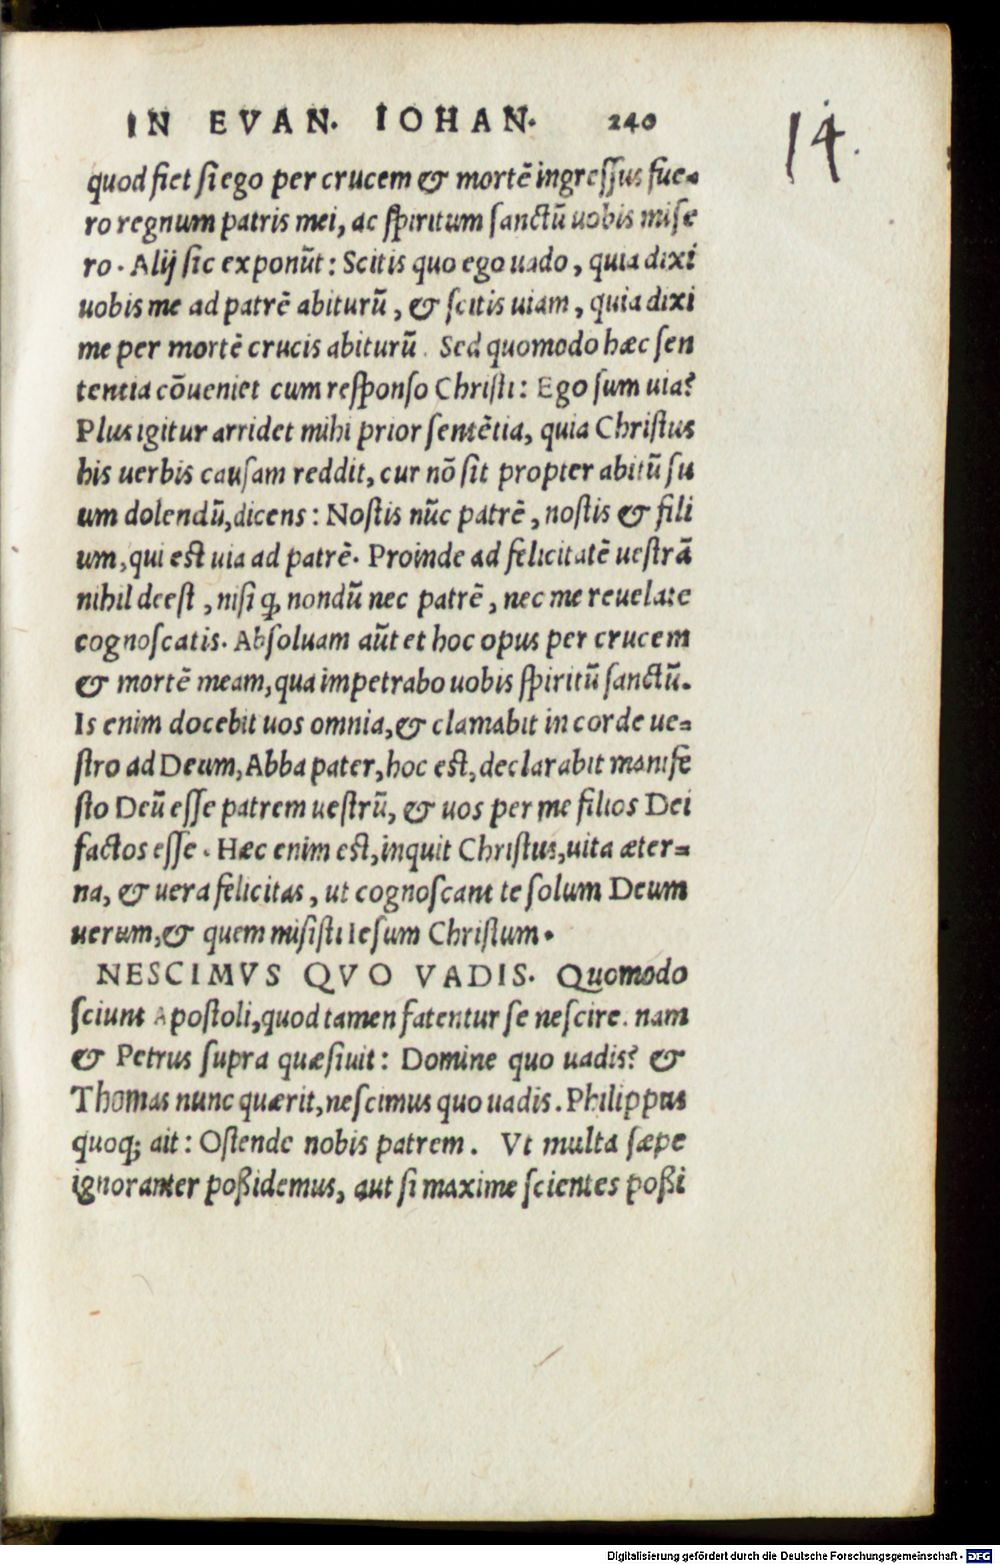 IN EVAN. IOHAN. 240
14.
quod fiet si ego per crucem & mortē ingressus fue-
ro regnum patris mei, ac spiritum sanctū uobis mise
ro. Alij sic exponūt: Scitis quo ego uado, quia dixi
uobis me ad patrē abiturū, & scitis uiam, quia dixi
me per mortē crucis abiturū. Sed quomodo hæc sen
tentia cōueniet cum responso Christi: Ego sum uia?
Plus igitur arridet mihi prior sentētia, quia Christus
his uerbis causam reddit, cur nō sit propter abitū su
um dolendū, dicens: Nostis nūc patrē, nostis & fili
um, qui est uia ad patrē. Proinde ad felicitatē uestrā
nihil deest, nisi ꝙ nondū nec patrē, nec me reuelate
cognoscatis. Absoluam aūt et hoc opus per crucem
& mortē meam, qua impetrabo uobis spiritū sanctū.
Is enim docebit uos omnia, & clamabit in corde ue-
stro ad Deum, Abba pater, hoc est, declarabit manife
sto Deū esse patrem uestrū, & uos per me filios Dei
factos esse. Hæc enim est, inquit Christus, uita æter-
na, & uera felicitas, ut cognoscant te solum Deum
uerum, & quem misisti Iesum Christum.
NESCIMVS QVO VADIS. Quomodo
sciunt Apostoli, quod tamen fatentur se nescire. nam
& Petrus supra quæsiuit: Domine quo uadis? &
Thomas nunc quærit, nescimus quo uadis. Philippus
quoq; ait: Ostende nobis patrem. Vt multa sæpe
ignoranter poßidemus, aut si maxime scientes poßi
Digitalisierung gefördert durch die Deutsche Forschungsgemeinschaft - DFG